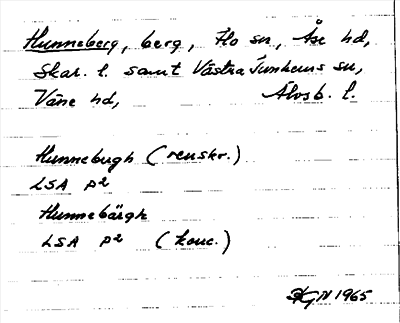 Hunneberg, berg, Flo sn, Åse hd,
Skar. l. samt Västra Tunhems sn,
Väne hd, Älvsb. l.
Hunnebergh (renskr.)
LSA P2
Hunnebärgh
LSA P2 (konc.)
1965